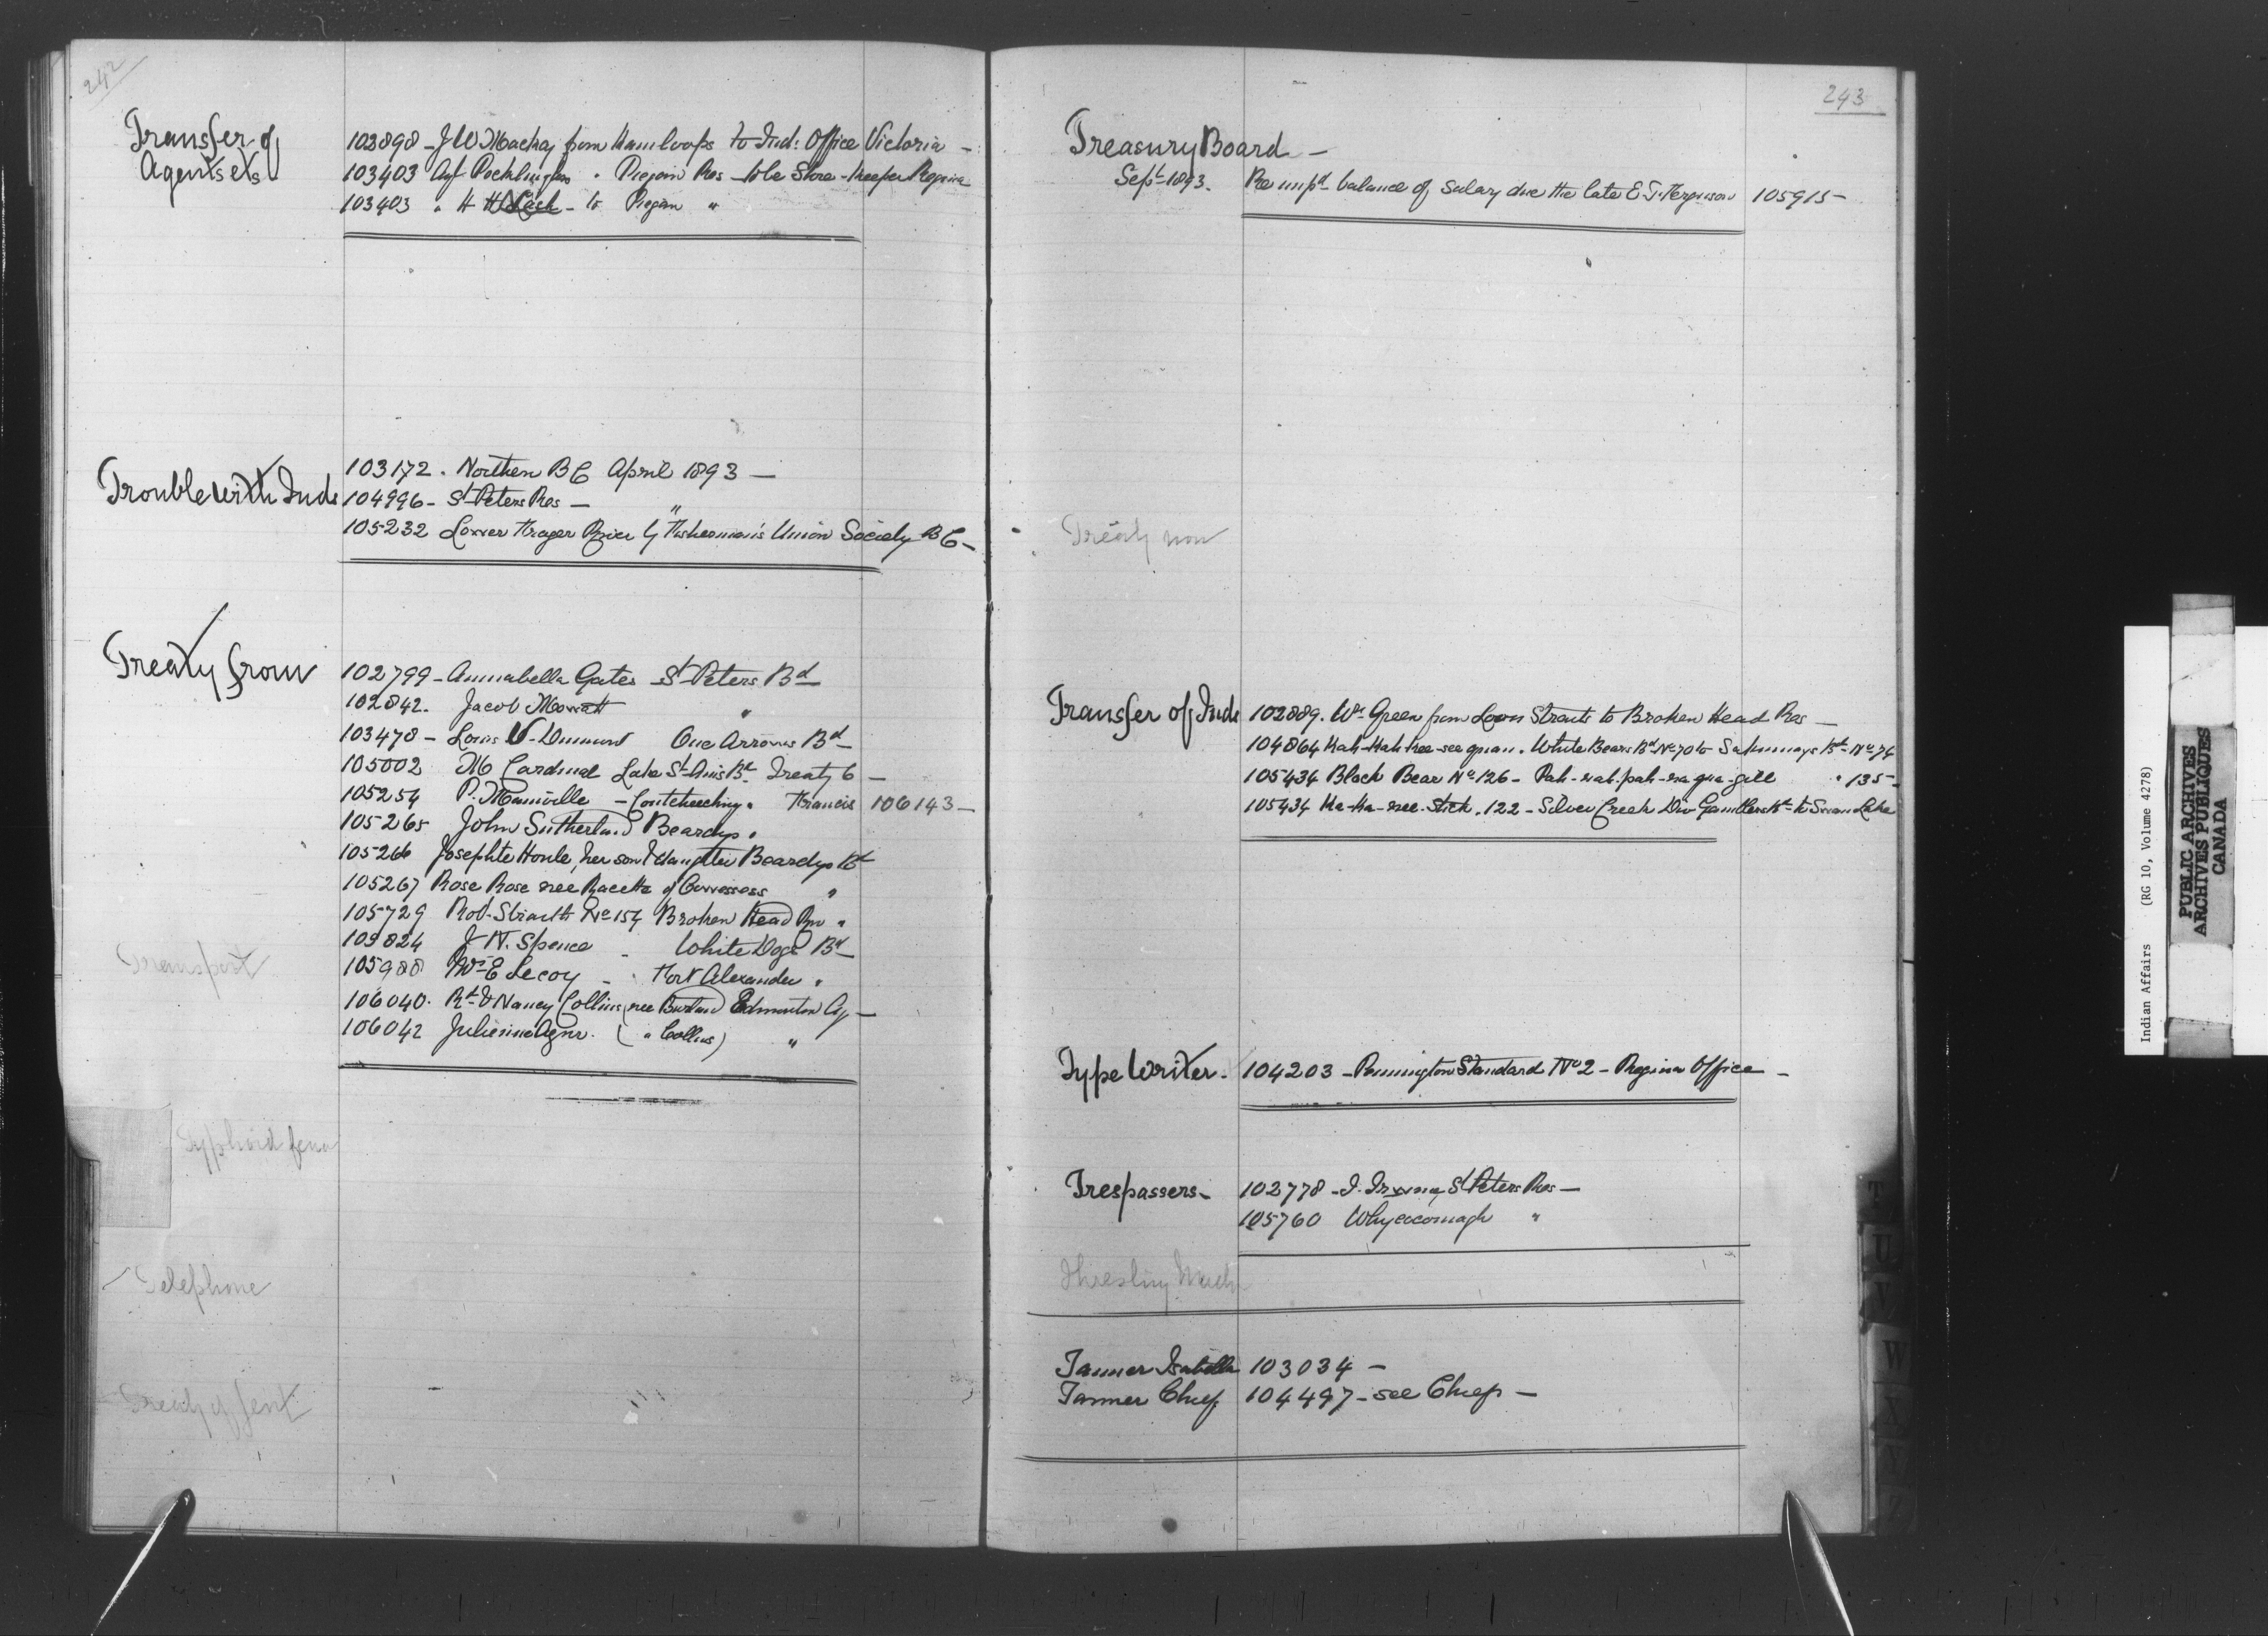 242
Transfer of
Agents etc
102898 - J W Mackay from Kamloops to Ind: Office Victoria -
103403 Agt Pocklington " Piegan Res - to be Store-keeper Regina
103403 " H H Nash - to Piegan "
Trouble with Inds
103172 . Northern B C April 1893 -
104996 - St Peters Res - "
105232 Lower Frazer River by Fisherman's Union Society B C -
Treaty from
102799 - Annabella Gates St Peters Bd
102842 . Jacob Mowatt "
103478 - Louis Dumont One Arrows Bd
105002 M Cardinal Lake St Anns Bd Treaty 6 -
105254 P. Mainville - Coutcheeching " Francis 106143 -
105265 John Sutherland Beardys "
105266 Josephte Houle, her son & daughter Beardys Bd
105267 Rose Rose nee Racette of Cowessess "
105729 Rob. Straith No 154 Broken Head Riv "
105824 J N. Spence - White Dogs Bd
105988 Mrs E Lecoy - Fort Alexander "
106040 . Rd & Nancy Collins, nee Agy -
106042 Julienne ( " Collins) "
Transport
Typhoid fever
Telephone
Treaty of
243
Treasury Board -
Sept 1893.
Re balance of Salary due the late E. T. Ferguson 105915 -
Treaty
Transfer of Inds
102889 . Wm Green from Straits to Broken Head Res -
104864 Kah-Kah-kee-see . White Bears Bd No 70 to Sakimays Bd No 74
105434 Black Bear No 126 - " 135 -
105434 Ka-Ka- . 122 - Silver Creek Div Gamblers Bd to Swan Lake
Type Writer - 104203 - Remmington Standard No 2 - Regina Office -
Trespassers - 102778 - St Peters Res -
105760 Whycocomagh "
Threshing Mach
Tanner Isabella 103034 -
Tanner Chief 104497 - see Chiefs -
T
U
V
W
X
Y
Z
Indian Affairs (RG 10, Volume 4278)
PUBLIC ARCHIVES
ARCHIVES PUBLIQUES
CANADA